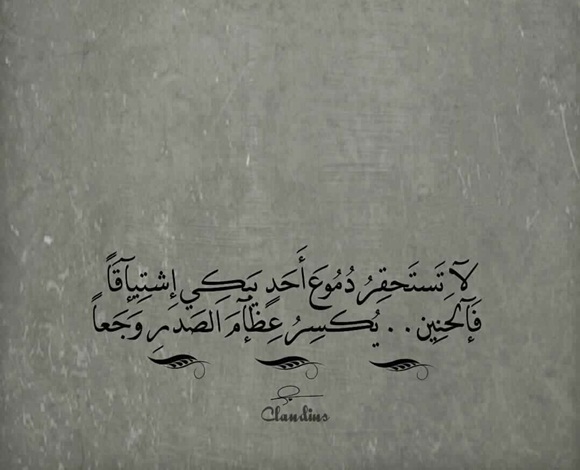 لآ تَستَحقِرُ دُمُوعَ أَحَدٍ يَبكِي إِشتِيآقَاً
فَآلحَنِين . . يُكسِرُ عِظَآمَ الصَدرِ وَجَعاً
Claudius